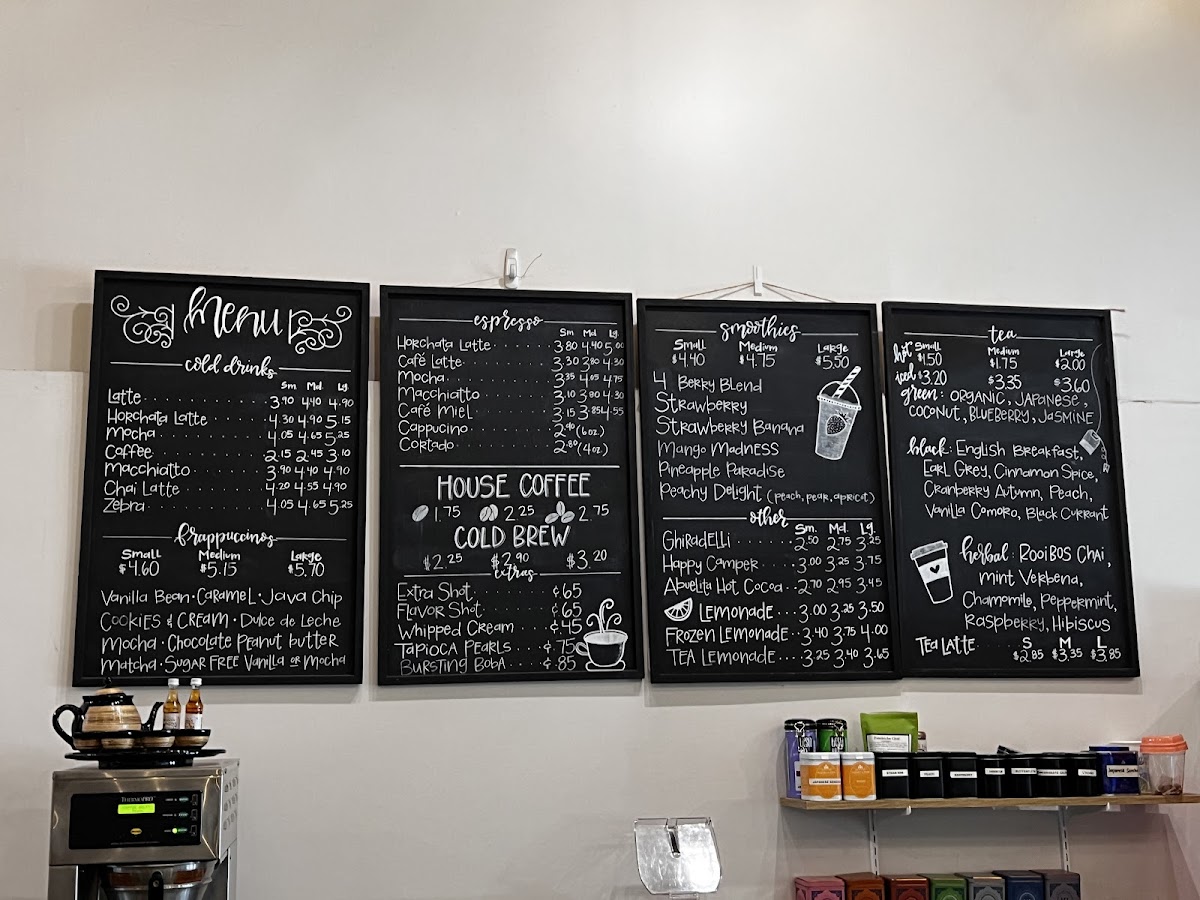 Menu
cold drinks
Sm Md Lg
Latte 3.90 4.40 4.90
Horchata Latte 4.30 4.90 5.15
Mocha 4.05 4.65 5.25
Coffee 2.15 2.45 3.10
Macchiatto 3.90 4.40 4.90
Chai Latte 4.20 4.55 4.90
Zebra 4.05 4.65 5.25
frappuccinos
Small Medium Large
$4.60 $5.15 $5.70
Vanilla Bean · Caramel · Java Chip
Cookies & Cream · Dulce de Leche
Mocha · Chocolate Peanut butter
Matcha · Sugar Free Vanilla or Mocha
espresso
Sm Md. Lg.
Horchata Latte 3.80 4.40 5.00
Café Latte 3.30 3.80 4.30
Mocha 3.35 4.05 4.75
Macchiatto 3.10 3.90 4.30
Café Miel 3.15 3.85 4.55
Cappucino 2.90 (6oz)
Cortado 2.80 (4oz)
House Coffee
1.75 2.25 2.75
Cold Brew
$2.25 $2.90 $3.20
extras
Extra Shot ¢65
Flavor Shot ¢65
Whipped Cream ¢.45
Tapioca Pearls ¢.75
Bursting Boba ¢.85
smoothies
Small Medium Large
$4.40 $4.75 $5.50
4 Berry Blend
Strawberry
Strawberry Banana
Mango Madness
Pineapple Paradise
Peachy Delight (peach, pear, apricat)
other
Sm. Md. Lg.
Ghiradelli 2.50 2.75 3.25
Happy Camper 3.00 3.25 3.75
Abuelita Hot Cocoa 2.70 2.95 3.45
Lemonade 3.00 3.25 3.50
Frozen Lemonade 3.40 3.75 4.00
Tea Lemonade 3.25 3.40 3.65
tea
Small Medium Large
hot $1.50 $1.75 $2.00
iced $3.20 $3.35 $3.60
green: Organic, Japanese,
Coconut, Blueberry, Jasmine
black: English Breakfast,
Earl Grey, Cinnamon Spice,
Cranberry Autumn, Peach,
Vanilla Comoro, Black Currant
herbal: Rooibos Chai,
Mint Verbena,
Chamomile, Peppermint,
Raspberry, Hibiscus
S M L
Tea Latte $2.85 $3.35 $3.85